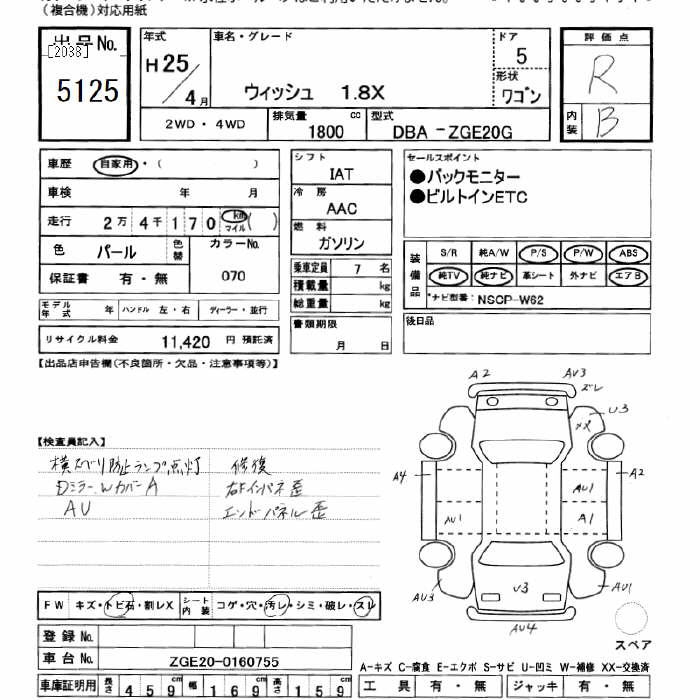 (複合機)対応用紙
出品No.
[2038]
5125
年式
H25/4月
車名・グレード
ウィッシュ 1.8X
ドア
5
形状
ワゴン
評価点
R
内装
B
2WD・4WD
排気量
1800 cc
型式
DBA-ZGE20G
車歴 自家用・( )
車検 年 月
走行 2万4千170 km マイル ( )
色 パール
色替
カラーNo.
070
保証書 有・無
シフト
IAT
冷房
AAC
燃料
ガソリン
乗車定員 7 名
積載量 kg
総重量 kg
セールスポイント
●バックモニター
●ビルトインETC
装備品
S/R 純A/W P/S P/W ABS
純TV 純ナビ 革シート 外ナビ エアB
*ナビ型番: NSCP-W62
モデル年式 年 ハンドル 左・右 ディーラー・並行
リサイクル料金 11,420 円 預託済
書類期限
月 日
後日品
【出品店申告欄(不良箇所・欠品・注意事項等)】
【検査員記入】
横スベリ防止ランプ点灯 修復
Dミラー.WカバーA 右下インパネ歪
AU エンドパネル歪
A2
AU3
ズレ
U3
XX
A4
A2
AU1
AU1
A1
AU3
U3
AU1
AU4
スペア
FW キズ・トビ石・割レX シート内装 コゲ・穴・汚レ・シミ・破レ・スレ
登録No.
車台No. ZGE20-0160755
A-キズ C-腐食 E-エクボ S-サビ U-凹ミ W-補修 XX-交換済
車庫証明用 長さ 459cm 幅 169cm 高さ 159cm
工具 有・無 ジャッキ 有・無